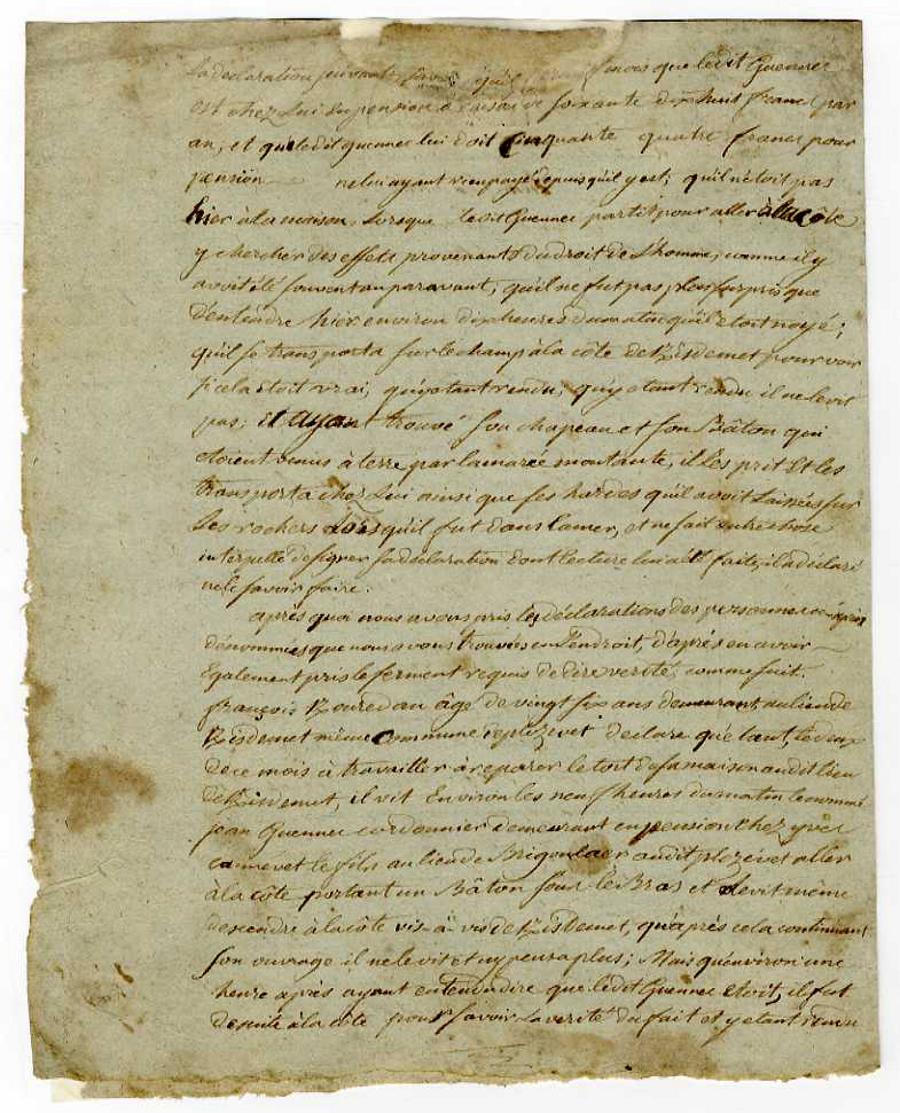 sa declaration suivante, savoir qu'il mois que ledit Guennec
est chez lui en pension à raison de soixante dix huit francs par
an, et que ledit guennec lui doit Cinquante quatre francs pour
pension ne lui ayant rien payé depuis qu'il y est; qu'il n'étoit pas
hier à la maison, lorsque ledit Guennec partit pour aller à la côte
y chercher des effets provenants du droit de l'homme, comme il y
avoit été souvent auparavant, qu'il ne fut pas plus surpris que
d'entendre hier environ dix heures du matin qu'il étoit noyé;
qu'il se transporta sur le champ à la côte de Kisdemet pour voir
si cela étoit vrai, qu'y étant rendu, qu'y étant rendu il ne le vit
pas; Et ayant trouvé son chapeau et son Bâton qui
etoient venus à terre par la marée montante, il les prit Et les
transporta chez lui ainsi que ses hardes qu'il avoit laissées sur
les rochers lorsqu'il fut dans la mer, et ne sait autre chose
interpellé de signer sa declaration dont lecture lui a été faite, il a déclaré
ne le savoir faire.
après quoi nous avons pris les déclarations des personnes ci après
dénommées que nous avons trouvées en l'endroit, d'après en avoir
Egalement pris le serment requis de dire verité, comme suit.
françois Bouredau âgé de vingt six ans demeurant au lieu de
Kisdemet même Commune de plozevet declare qu'étant, le deux
de ce mois à travailler à reparer le toit de sa maison audit lieu
de Kisdemet, il vit Environ les neuf heures du matin le nommé
jean Guennec cordonnier demeurant en pension chez yves
cannevet le fils au lieu de Brigoulaer audit plozévet aller
à la côte portant un Bâton sous le Bras et le vit même
descendre à la côte vis-à-vis de Kisdemet, qu'après cela continuant
son ouvrage il ne le vit et n'y pensa plus; Mais qu'environ une
heure après ayant entendu dire que ledit Guennec étoit, il fut
desuite à la côte pour savoir la verité du fait et y étant rendu